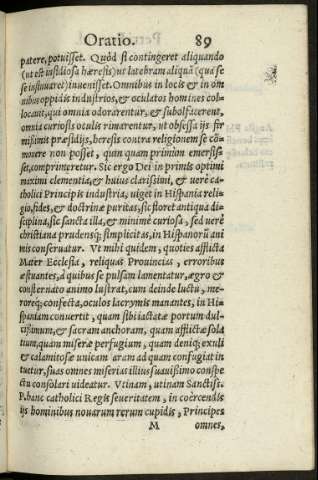 Oratio. 89
patere, potuisset. Quòd si contingeret aliquando
(ut est insidiosa hæresis) ut latebram aliquã (qua se
se insinuaret) inuenisset. Omnibus in locis & in om
nibus oppidis industrios, & oculatos homines col-
locant, qui omnia odorarentur, & subolfacerent,
omnia curiosis oculis rimarentur, ut obsessa ijs fir
missimis præsidijs, heresis contra religionem se cõ-
mouere non posset, quin quam primùm emersis-
set, comprimeretur. Sic ergo Dei in primis optimi
maximi clementia, & huius clarissimi, & uerè ca-
tholici Principis industria, uiget in Hispania reli-
gio, fides, & doctrinæ puritas, sic floret antiqua di-
sciplina, sic sancta illa, & minimè curiosa, sed uerè
christiana prudensq; simplicitas, in Hispanorũ ani
mis conseruatur. Vt mihi quidem, quoties afflicta
Mater Ecclesia, reliquas Prouincias, erroribus
æstuantes, à quibus se pulsam lamentatur, ægro &
consternato animo lustrat, cum deinde luctu, me-
roreq; confecta, oculos lacrymis manantes, in Hi-
spaniam conuertit, quam sibi iactatæ portum dul-
cissimum, & sacram anchoram, quam afflictæ sola
tium, quam miseræ perfugium, quam deniq; exuli
& calamitosæ unicam aram ad quam confugiat in
tuetur, suas omnes miserias illius suauissimo conspe
ctu consolari uideatur. Vtinam, utinam Sanctiss.
P. hanc catholici Regis seueritatem, in coërcendis
ijs hominibus nouarum rerum cupidis, Principes
M omnes,